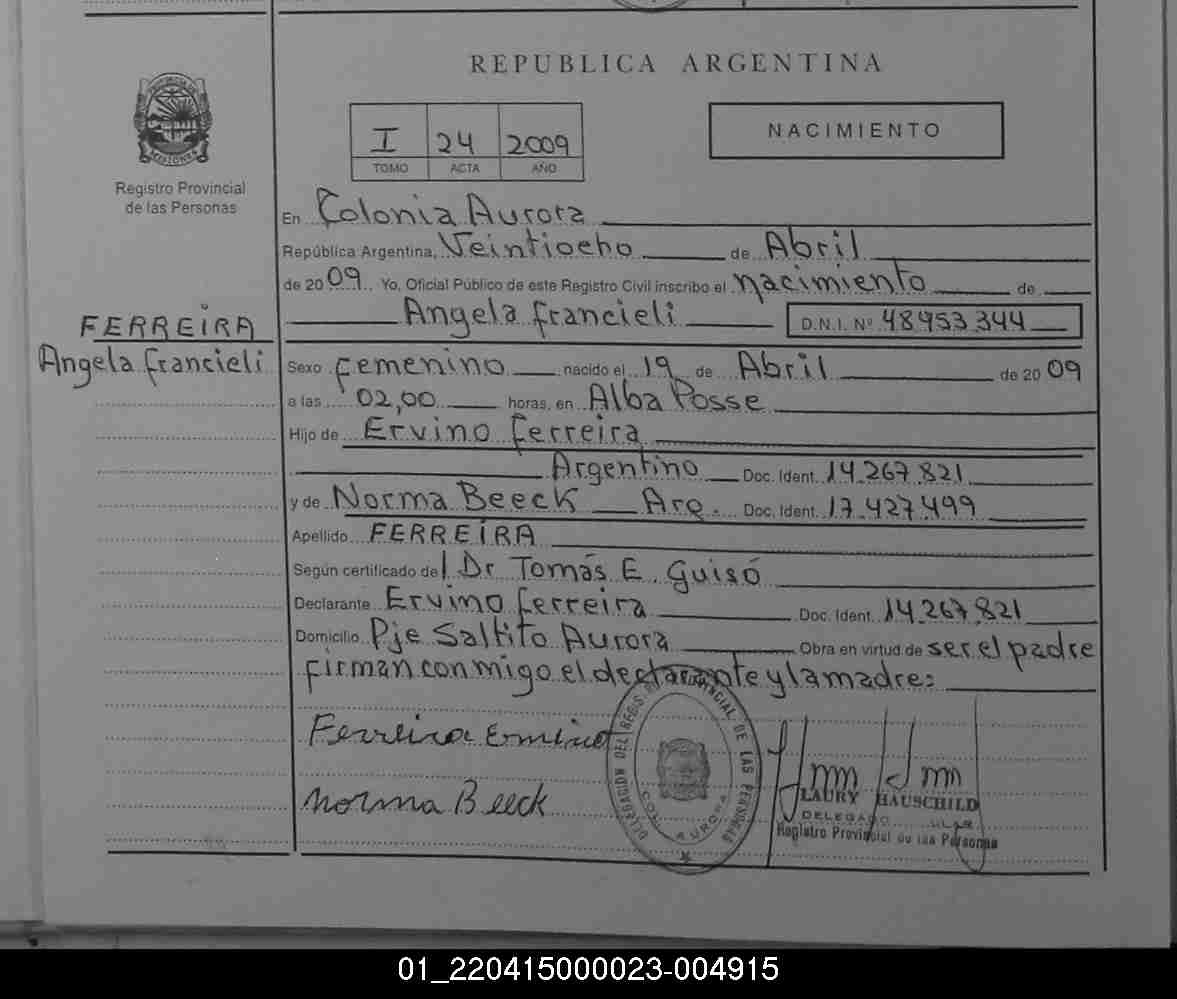 REPUBLICA ARGENTINA
NACIMIENTO
I 24 2009
TOMO ACTA AÑO
PROVINCIA DE MISIONES
Registro Provincial
de las Personas
FERREIRA
Angela Francieli
En Colonia Aurora
República Argentina, Veintiocho de Abril
de 2009. Yo, Oficial Público de este Registro Civil inscribo el nacimiento de
Angela Francieli D.N.I. Nº 48953344
Sexo Femenino nacido el 19 de Abril de 2009
a las 02,00 horas, en Alba Posse
Hijo de Ervino Ferreira
Argentino Doc. Ident. 14.267.821
y de Norma Beeck Arg. Doc. Ident. 17.427.499
Apellido FERREIRA
Según certificado del Dr Tomás E. Guisó
Declarante Ervino Ferreira Doc. Ident. 14.267.821
Domicilio Pje Saltito Aurora Obra en virtud de ser el padre
firman conmigo el declarante y la madre:
Ferreira Ervino
Norma Beeck
DELEGACION DEL REGISTRO PROVINCIAL DE LAS PERSONAS
COL. AURORA
LAURY HAUSCHILD
Registro Provincial de las Personas
01_220415000023-004915